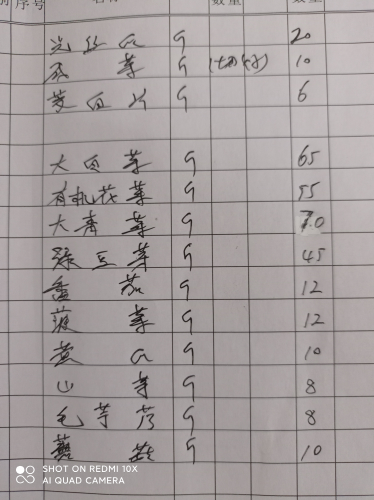 序号 名称 数量 数量
光丝瓜 G 20
G (切好) 10
茭白片 G 6
大白菜 G 65
有机花菜 G 55
大青菜 G 70
绿豆芽 G 45
番茄 G 12
菠菜 G 12
黄瓜 G 10
山 G 8
毛芋艿 G 8
蘑菇 G 10
SHOT ON REDMI 10X
AI QUAD CAMERA